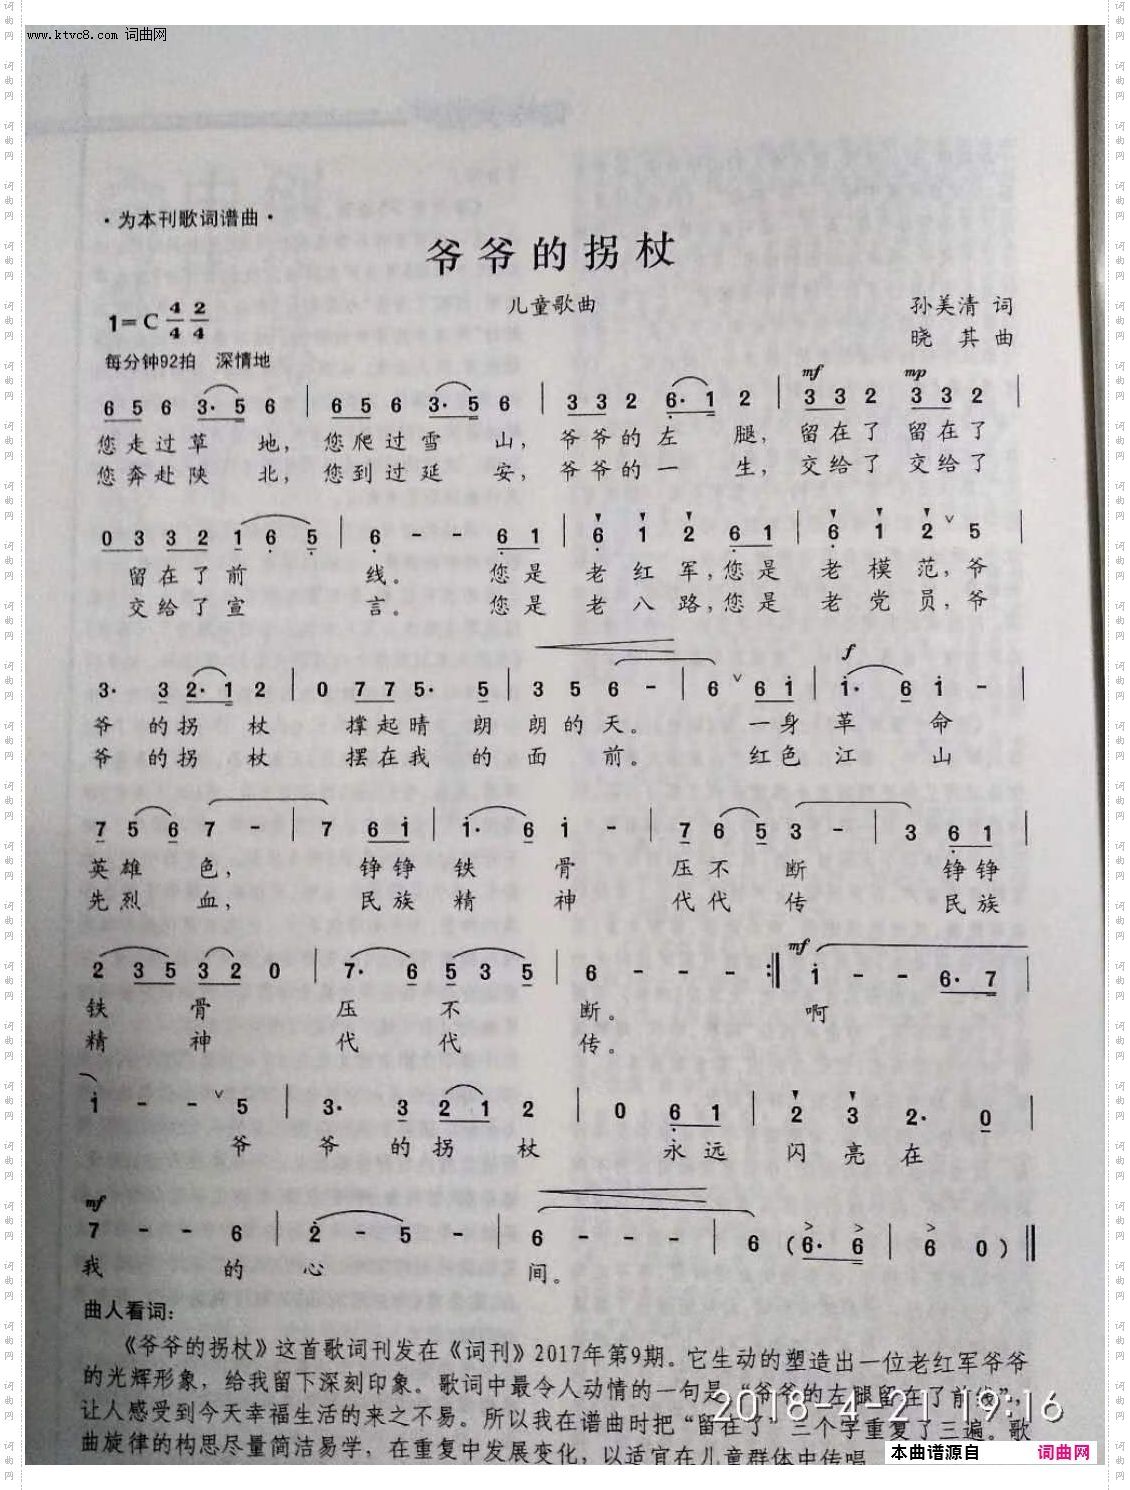 www.ktvc8.com 词曲网
·为本刊歌词谱曲·
爷爷的拐杖
儿童歌曲
孙美清 词
晓其 曲
1=C 4/4 2/4
每分钟92拍 深情地
mf mp
6 5 6 3· 5 6 | 6 5 6 3· 5 6 | 3 3 2 6· 1 2 | 3 3 2 3 3 2 |
您走过草 地, 您爬过雪 山, 爷爷的左 腿, 留在了 留在了
您奔赴陕 北, 您到过延 安, 爷爷的一 生, 交给了 交给了
0 3 3 2 1 6 5 | 6 - - 6 1 | 6 1 2 6 1 | 6 1 2 ∨ 5 |
留在了前 线。 您是 老红军,您是 老模范,爷
交给了宣 言。 您是 老八路,您是 老党员,爷
3· 3 2· 1 2 | 0 7 7 5· 5 | 3 5 6 - | 6 ∨ 6 i | i· 6 i - |
f
爷 的拐 杖 撑起晴 朗 朗的天。 一身 革 命
爷 的拐 杖 摆在我 的 面 前。 红色 江 山
7 5 6 7 - | 7 6 i | i· 6 i - | 7 6 5 3 - | 3 6 1 |
英雄 色, 铮铮 铁 骨 压不 断 铮铮
先烈 血, 民族 精 神 代代 传 民族
mf
2 3 5 3 2 0 | 7· 6 5 3 5 | 6 - - - :‖ i - - 6· 7 |
铁 骨 压 不 断。 啊
精 神 代 代 传。
i - - ∨ 5 | 3· 3 2 1 2 | 0 6 1 | 2 3 2· 0 |
爷 爷 的拐 杖 永远 闪亮在
mf
7 - - 6 | 2 - 5 - | 6 - - - | 6 (6· 6 | 6 0) ‖
我 的 心 间。
曲人看词：
《爷爷的拐杖》这首歌词刊发在《词刊》2017年第9期。它生动的塑造出一位老红军爷爷
的光辉形象，给我留下深刻印象。歌词中最令人动情的一句是“爷爷的左腿留在了前线”，
让人感受到今天幸福生活的来之不易。所以我在谱曲时把“留在了”三个学重复了三遍。歌
曲旋律的构思尽量简洁易学，在重复中发展变化，以适宜在儿童群体中传唱
2018-4-2 19:16
本曲谱源自 词曲网